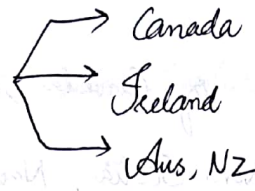 Canada
Ireland
Aus, NZ